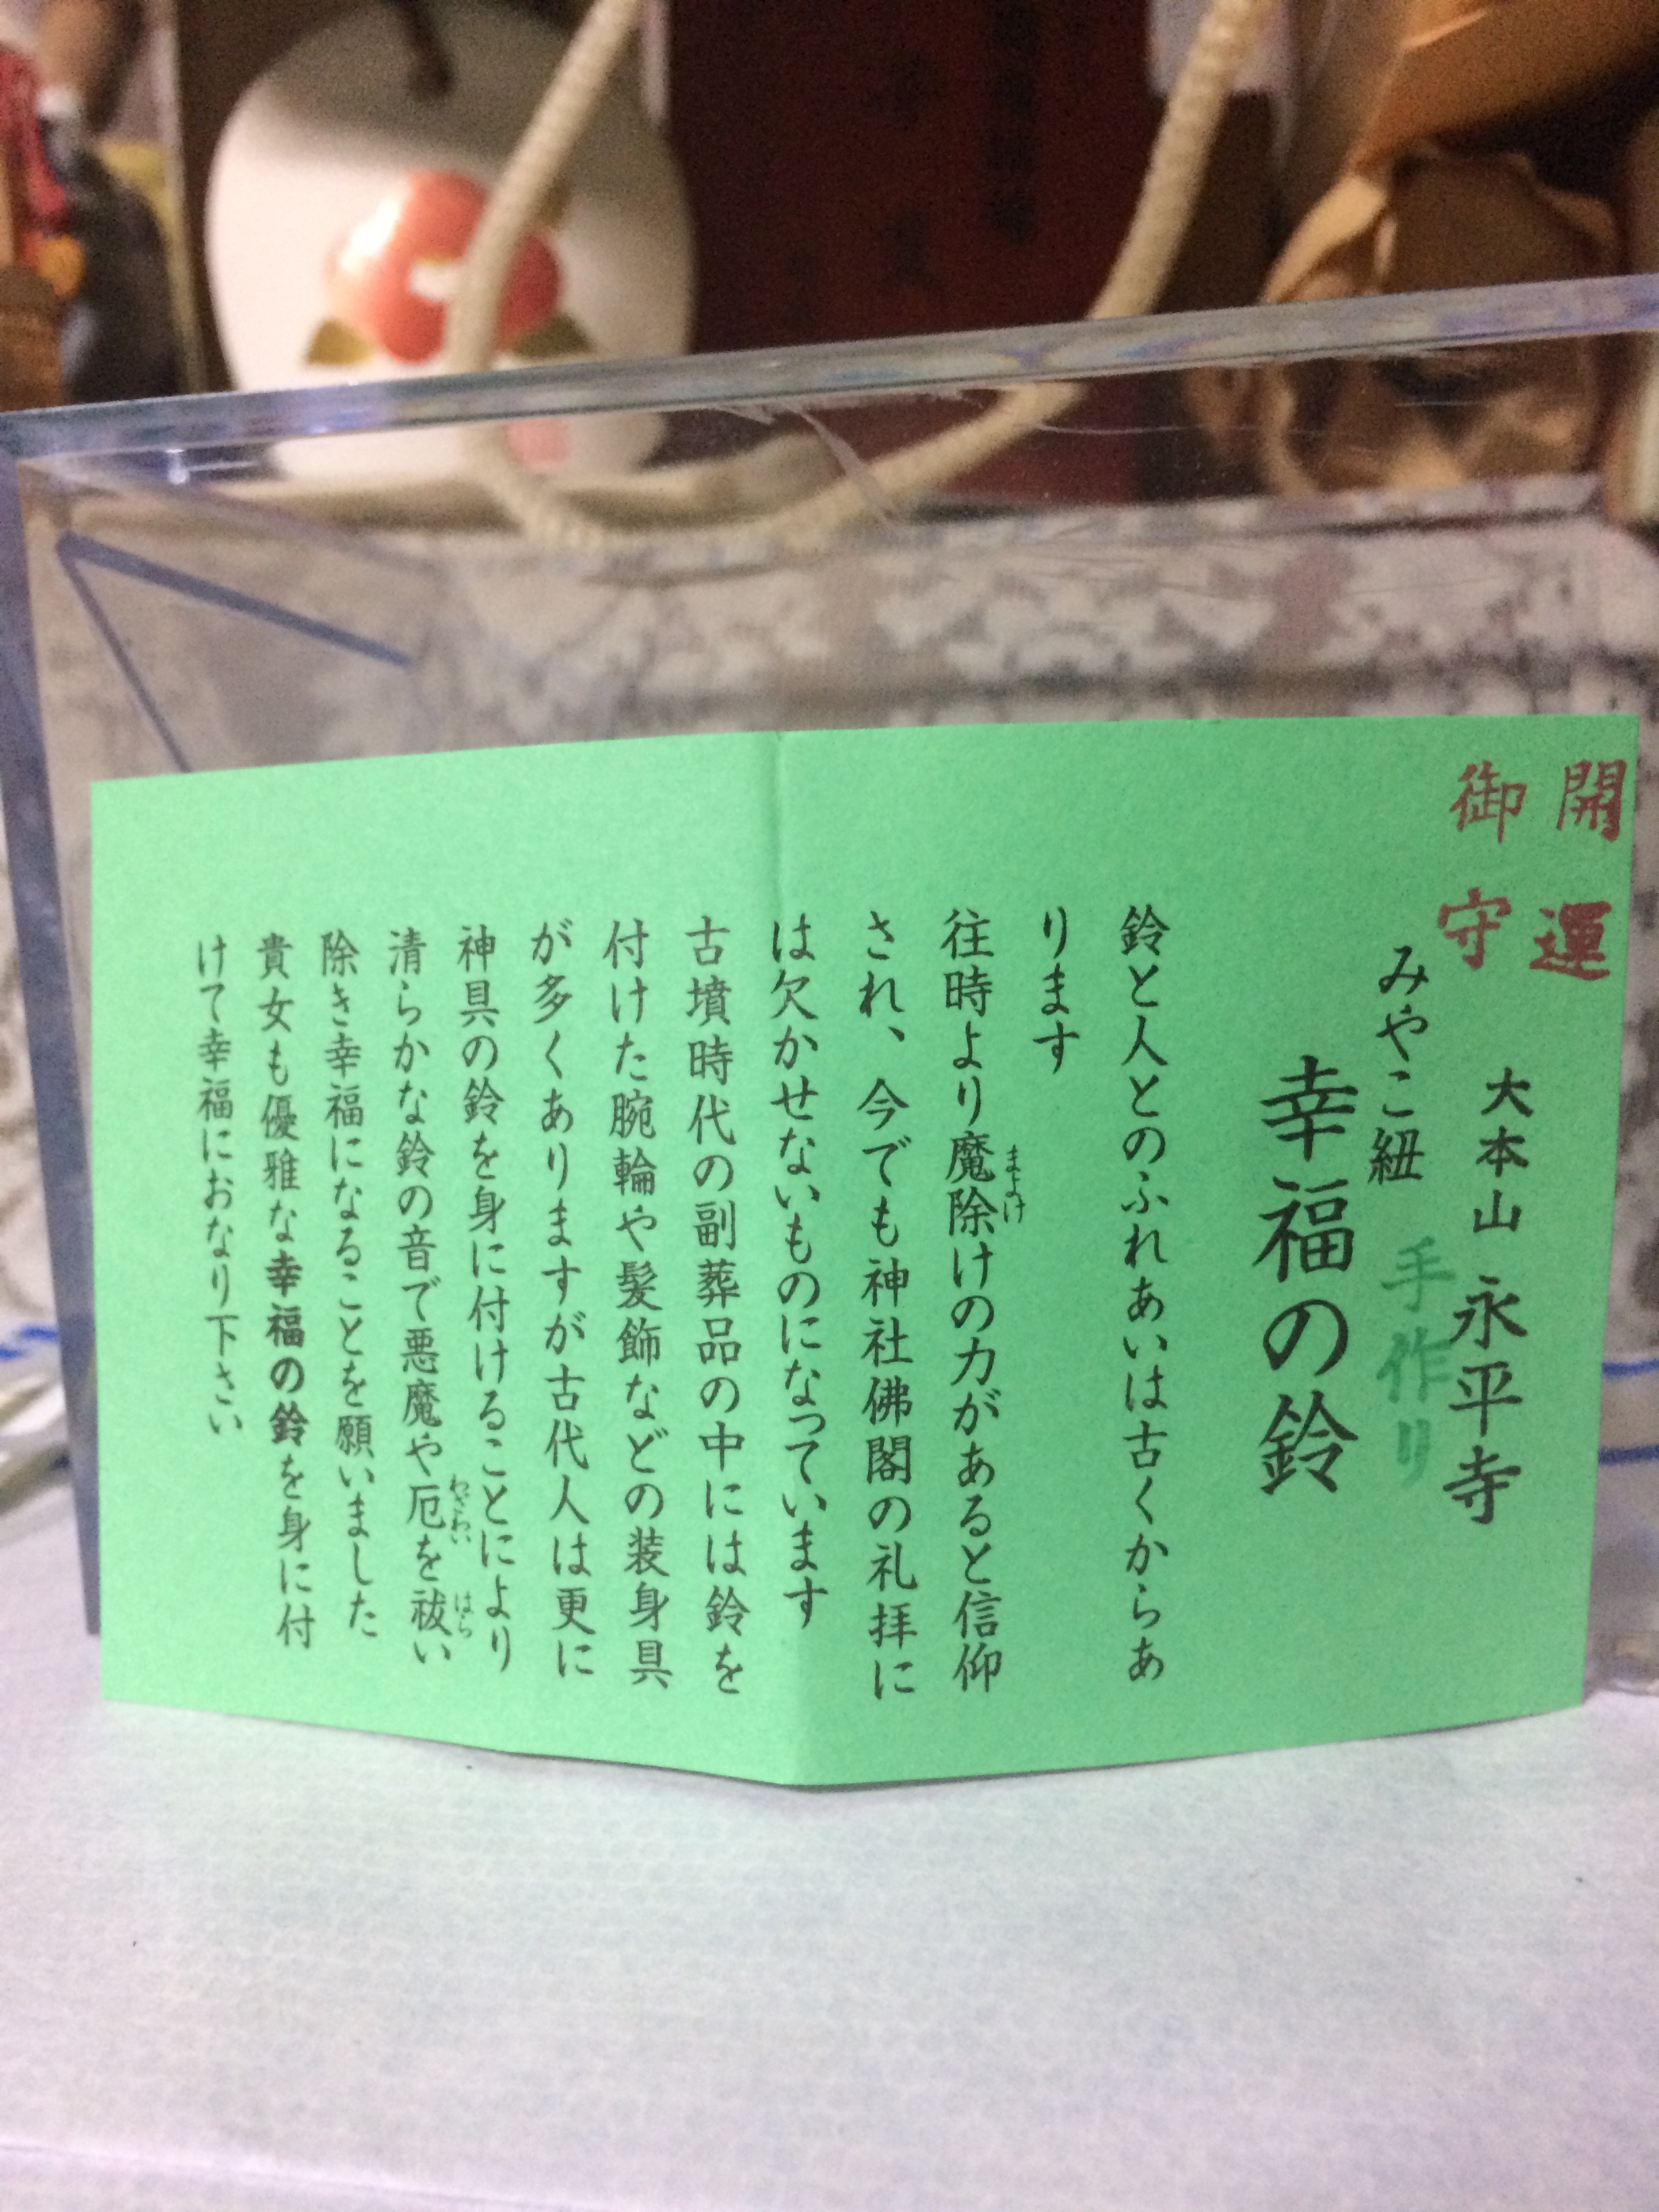 開運
御守
大本山 永平寺
みやこ紐 手作り
幸福の鈴
鈴と人とのふれあいは古くからあ
ります
往時より魔除けの力があると信仰
まよけ
され、今でも神社佛閣の礼拝に
は欠かせないものになっています
古墳時代の副葬品の中には鈴を
付けた腕輪や髪飾などの装身具
が多くありますが古代人は更に
神具の鈴を身に付けることにより
清らかな鈴の音で悪魔や厄を祓い
わざわい はら
除き幸福になることを願いました
貴女も優雅な幸福の鈴を身に付
けて幸福におなり下さい